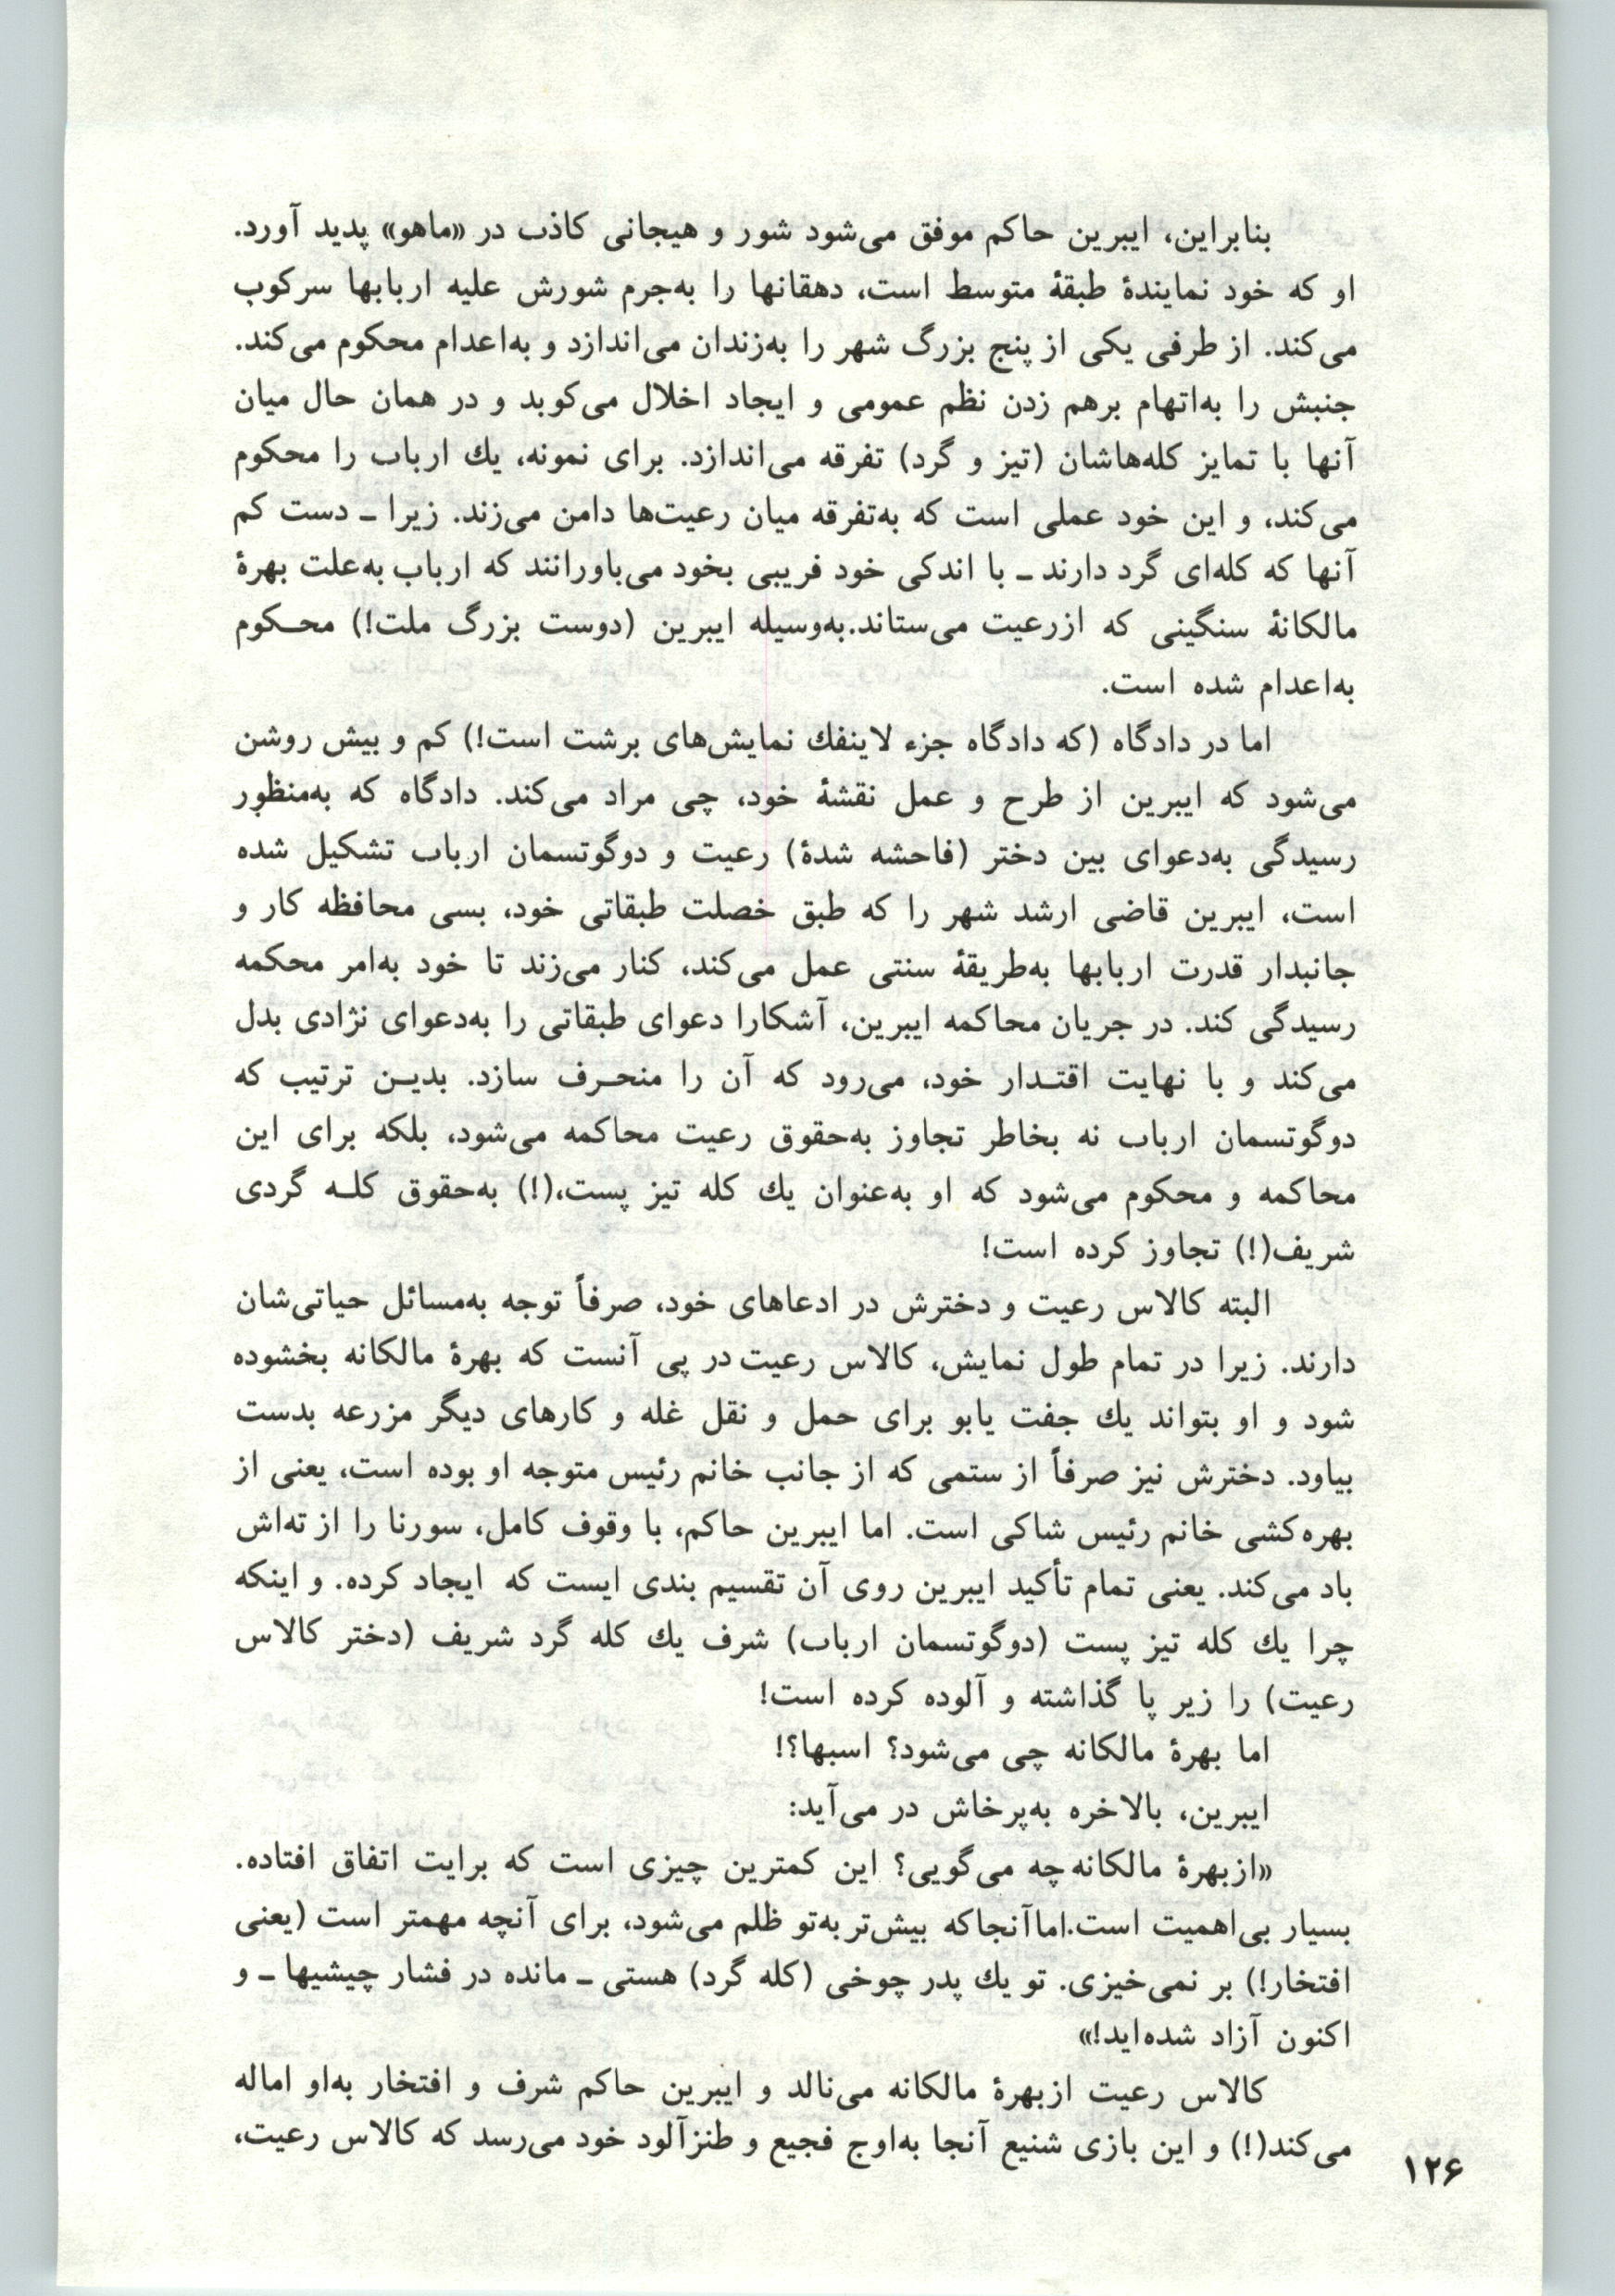 بنابراین، ایبرین حاکم موفق می‌شود شور و هیجانی کاذب در «ماهو» پدید آورد.
او که خود نمایندهٔ طبقهٔ متوسط است، دهقانها را به‌جرم شورش علیه اربابها سرکوب
می‌کند. از طرفی یکی از پنج بزرگ شهر را به‌زندان می‌اندازد و به‌اعدام محکوم می‌کند.
جنبش را به‌اتهام برهم زدن نظم عمومی و ایجاد اخلال می‌کوبد و در همان حال میان
آنها با تمایز کله‌هاشان (تیز و گرد) تفرقه می‌اندازد. برای نمونه، یك ارباب را محکوم
می‌کند، و این خود عملی است که به‌تفرقه میان رعیت‌ها دامن می‌زند. زیرا ـ دست کم
آنها که کله‌ای گرد دارند ـ با اندکی خود فریبی بخود می‌باورانند که ارباب به‌علت بهرهٔ
مالکانهٔ سنگینی که ازرعیت می‌ستاند.به‌وسیله ایبرین (دوست بزرگ ملت!) محـکوم
به‌اعدام شده است.
اما در دادگاه (که دادگاه جزء لاینفك نمایش‌های برشت است!) کم و بیش روشن
می‌شود که ایبرین از طرح و عمل نقشهٔ خود، چی مراد می‌کند. دادگاه که به‌منظور
رسیدگی به‌دعوای بین دختر (فاحشه شدهٔ) رعیت و دوگوتسمان ارباب تشکیل شده
است، ایبرین قاضی ارشد شهر را که طبق خصلت طبقاتی خود، بسی محافظه کار و
جانبدار قدرت اربابها به‌طریقهٔ سنتی عمل می‌کند، کنار می‌زند تا خود به‌امر محکمه
رسیدگی کند. در جریان محاکمه ایبرین، آشکارا دعوای طبقاتی را به‌دعوای نژادی بدل
می‌کند و با نهایت اقتـدار خود، می‌رود که آن را منحـرف سازد. بدیـن ترتیب که
دوگوتسمان ارباب نه بخاطر تجاوز به‌حقوق رعیت محاکمه می‌شود، بلکه برای این
محاکمه و محکوم می‌شود که او به‌عنوان یك کله تیز پست،(!) به‌حقوق کلـه گردی
شریف(!) تجاوز کرده است!
البته کالاس رعیت و دخترش در ادعاهای خود، صرفاً توجه به‌مسائل حیاتی‌شان
دارند. زیرا در تمام طول نمایش، کالاس رعیت در پی آنست که بهرهٔ مالکانه بخشوده
شود و او بتواند یك جفت یابو برای حمل و نقل غله و کارهای دیگر مزرعه بدست
بیاود. دخترش نیز صرفاً از ستمی که از جانب خانم رئیس متوجه او بوده است، یعنی از
بهره‌کشی خانم رئیس شاکی است. اما ایبرین حاکم، با وقوف کامل، سورنا را از ته‌اش
باد می‌کند. یعنی تمام تأکید ایبرین روی آن تقسیم بندی ایست که ایجاد کرده. و اینکه
چرا یك کله تیز پست (دوگوتسمان ارباب) شرف یك کله گرد شریف (دختر کالاس
رعیت) را زیر پا گذاشته و آلوده کرده است!
اما بهرهٔ مالکانه چی می‌شود؟ اسبها؟!
ایبرین، بالاخره به‌پرخاش در می‌آید:
«ازبهرهٔ مالکانه چه می‌گویی؟ این کمترین چیزی است که برایت اتفاق افتاده.
بسیار بی‌اهمیت است.اماآنجاکه بیش‌تر به‌تو ظلم می‌شود، برای آنچه مهمتر است (یعنی
افتخار!) بر نمی‌خیزی. تو یك پدر چوخی (کله گرد) هستی ـ مانده در فشار چیشیها ـ و
اکنون آزاد شده‌اید!»
کالاس رعیت ازبهرهٔ مالکانه می‌نالد و ایبرین حاکم شرف و افتخار به‌او اماله
می‌کند(!) و این بازی شنیع آنجا به‌اوج فجیع و طنزآلود خود می‌رسد که کالاس رعیت،
۱۲۶